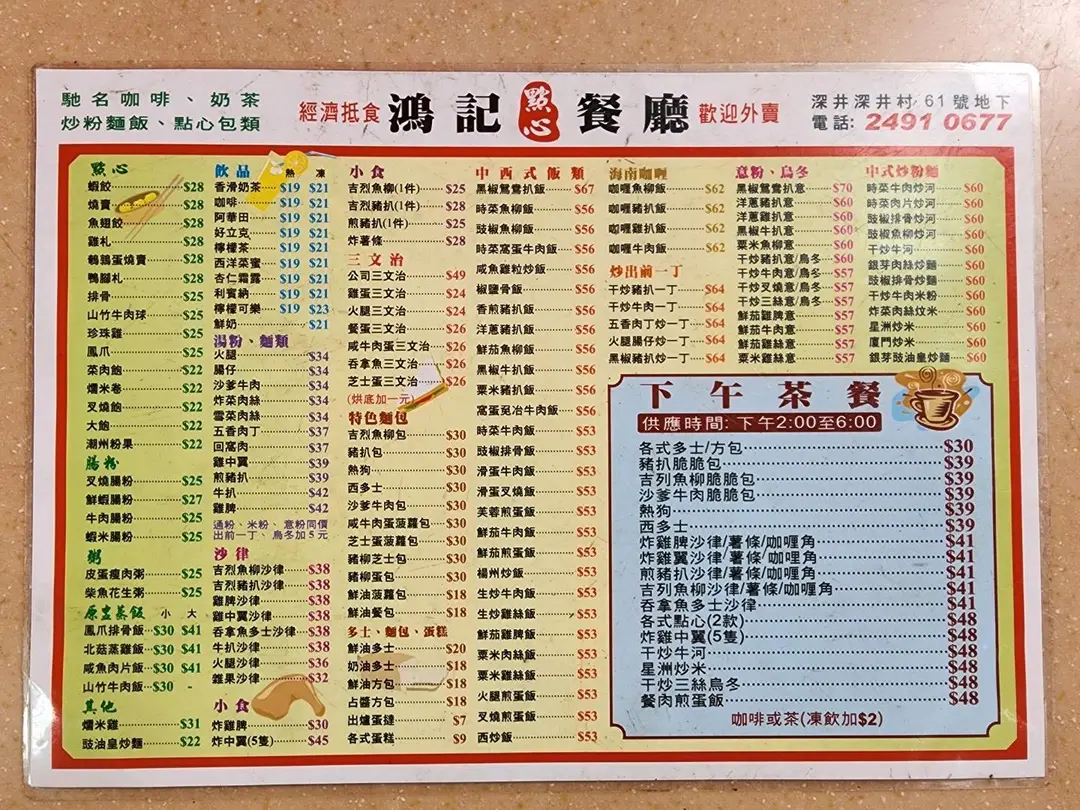 馳名咖啡、奶茶
炒粉麵飯、點心包類
經濟抵食 鴻記 點心 餐廳 歡迎外賣
深井深井村 61 號地下
電話: 2491 0677
點心
蝦餃 $28
燒賣 $28
魚翅餃 $28
雞札 $28
鵪鶉蛋燒賣 $28
鴨腳札 $28
排骨 $25
山竹牛肉球 $25
珍珠雞 $25
鳳爪 $25
菜肉飽 $22
糯米卷 $22
叉燒飽 $22
大飽 $22
潮州粉果 $22
腸粉
叉燒腸粉 $25
鮮蝦腸粉 $27
牛肉腸粉 $25
蝦米腸粉 $25
粥
皮蛋瘦肉粥 $25
柴魚花生粥 $25
原盅蒸飯 小 大
鳳爪排骨飯 $30 $41
北菇蒸雞飯 $30 $41
咸魚肉片飯 $30 $41
山竹牛肉飯 $30 -
其他
糯米雞 $31
豉油皇炒麵 $22
飲品 熱 凍
香滑奶茶 $19 $21
咖啡 $19 $21
阿華田 $19 $21
好立克 $19 $21
檸檬茶 $19 $21
西洋菜蜜 $19 $21
杏仁霜露 $19 $21
利賓納 $19 $21
檸檬可樂 $19 $23
鮮奶 $21
湯粉、麵類
火腿 $34
腸仔 $34
沙爹牛肉 $34
炸菜肉絲 $34
雪菜肉絲 $34
五香肉丁 $37
回窩肉 $37
雞中翼 $39
煎豬扒 $39
牛扒 $42
雞脾 $42
通粉、米粉、意粉同價
出前一丁、烏冬加5元
沙律
吉烈魚柳沙律 $38
吉烈豬扒沙律 $38
雞脾沙律 $38
雞中翼沙律 $38
吞拿魚多士沙律 $38
牛扒沙律 $38
火腿沙律 $36
雜果沙律 $32
小食
炸雞脾 $30
炸中翼(5隻) $45
小食
吉烈魚柳(1件) $25
吉烈豬扒(1件) $28
煎豬扒(1件) $25
炸薯條 $28
三文治
公司三文治 $49
雞蛋三文治 $24
火腿三文治 $24
餐蛋三文治 $26
咸牛肉蛋三文治 $26
吞拿魚三文治 $26
芝士蛋三文治 $26
(烘底加一元)
特色麵包
吉烈魚柳包 $30
豬扒包 $30
熱狗 $30
西多士 $30
沙爹牛肉包 $30
咸牛肉蛋菠蘿包 $30
芝士蛋菠蘿包 $30
豬柳芝士包 $30
豬柳蛋包 $30
鮮油菠蘿包 $18
鮮油餐包 $18
多士、麵包、蛋糕
鮮油多士 $20
奶油多士 $18
鮮油方包 $18
占醬方包 $18
出爐蛋撻 $7
各式蛋糕 $9
中西式飯類
黑椒鴛鴦扒飯 $67
時菜魚柳飯 $56
豉椒魚柳飯 $56
時菜窩蛋牛肉飯 $56
咸魚雞粒炒飯 $56
椒鹽骨飯 $56
香煎豬扒飯 $56
洋蔥豬扒飯 $56
鮮茄魚柳飯 $56
黑椒牛扒飯 $56
粟米豬扒飯 $56
窩蛋免治牛肉飯 $56
時菜牛肉飯 $53
豉椒排骨飯 $53
滑蛋牛肉飯 $53
滑蛋叉燒飯 $53
芙蓉煎蛋飯 $53
鮮茄牛肉飯 $53
鮮茄煎蛋飯 $53
楊州炒飯 $53
生炒牛肉飯 $53
生炒雞絲飯 $53
鮮茄雞脾飯 $53
粟米肉絲飯 $53
粟米雞絲飯 $53
火腿煎蛋飯 $53
叉燒煎蛋飯 $53
西炒飯 $53
海南咖喱
咖喱魚柳飯 $62
咖喱豬扒飯 $62
咖喱雞扒飯 $62
咖喱牛肉飯 $62
炒出前一丁
干炒豬扒一丁 $64
干炒牛肉一丁 $64
五香肉丁炒一丁 $64
火腿腸仔炒一丁 $64
黑椒豬扒炒一丁 $64
意粉、烏冬
黑椒鴛鴦扒意 $70
洋蔥豬扒意 $60
洋蔥雞扒意 $60
黑椒牛扒意 $60
粟米魚柳意 $60
干炒豬扒意/烏冬 $60
干炒牛肉意/烏冬 $57
干炒叉燒意/烏冬 $57
干炒三絲意/烏冬 $57
鮮茄雞脾意 $57
鮮茄牛肉意 $57
鮮茄雞絲意 $57
粟米雞絲意 $57
中式炒粉麵
時菜牛肉炒河 $60
時菜肉片炒河 $60
豉椒排骨炒河 $60
豉椒魚柳炒河 $60
干炒牛河 $60
銀芽肉絲炒麵 $60
豉椒排骨炒麵 $60
干炒牛肉米粉 $60
炸菜肉絲炆米 $60
星洲炒米 $60
廈門炒米 $60
銀芽豉油皇炒麵 $60
下午茶餐
供應時間: 下午2:00至6:00
各式多士/方包 $30
豬扒脆脆包 $39
吉列魚柳脆脆包 $39
沙爹牛肉脆脆包 $39
熱狗 $39
西多士 $39
炸雞脾沙律/薯條/咖喱角 $41
炸雞翼沙律/薯條/咖喱角 $41
煎豬扒沙律/薯條/咖喱角 $41
吉列魚柳沙律/薯條/咖喱角 $41
吞拿魚多士沙律 $41
各式點心(2款) $48
炸雞中翼(5隻) $48
干炒牛河 $48
星洲炒米 $48
干炒三絲烏冬 $48
餐肉煎蛋飯 $48
咖啡或茶(凍飲加$2)